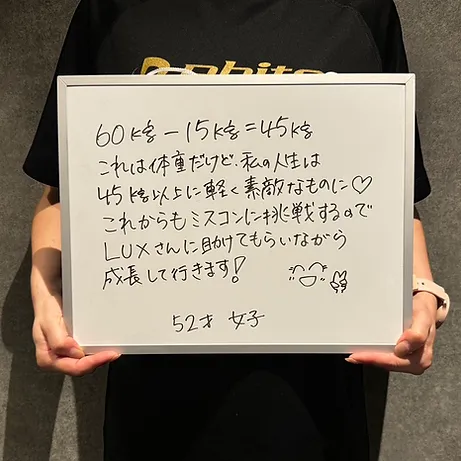 60kg－15kg＝45kg
これは体重だけど、私の人生は
45kg以上に軽く素敵なものに♡
これからもミスコンに挑戦するので
LUXさんに助けてもらいながら
成長して行きます!
52才 女子